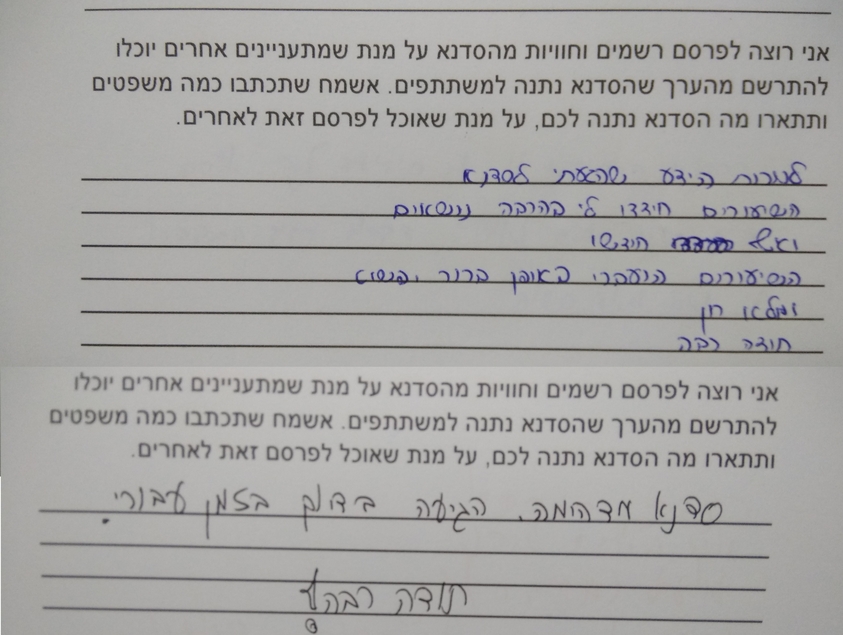 אני רוצה לפרסם רשמים וחוויות מהסדנא על מנת שמתעניינים אחרים יוכלו
להתרשם מהערך שהסדנא נתנה למשתתפים. אשמח שתכתבו כמה משפטים
ותתארו מה הסדנא נתנה לכם, על מנת שאוכל לפרסם זאת לאחרים.
למרות הידע שהגעתי לסדנא
השיעורים חידדו לי בהרבה נושאים
ואף חידשו
השיעורים הועברו באופן ברור, פשוט
ומלא חן
תודה רבה
אני רוצה לפרסם רשמים וחוויות מהסדנא על מנת שמתעניינים אחרים יוכלו
להתרשם מהערך שהסדנא נתנה למשתתפים. אשמח שתכתבו כמה משפטים
ותתארו מה הסדנא נתנה לכם, על מנת שאוכל לפרסם זאת לאחרים.
סדנא מדהימה. הגיעה בדיוק בזמן עבורי.
תודה רבה!